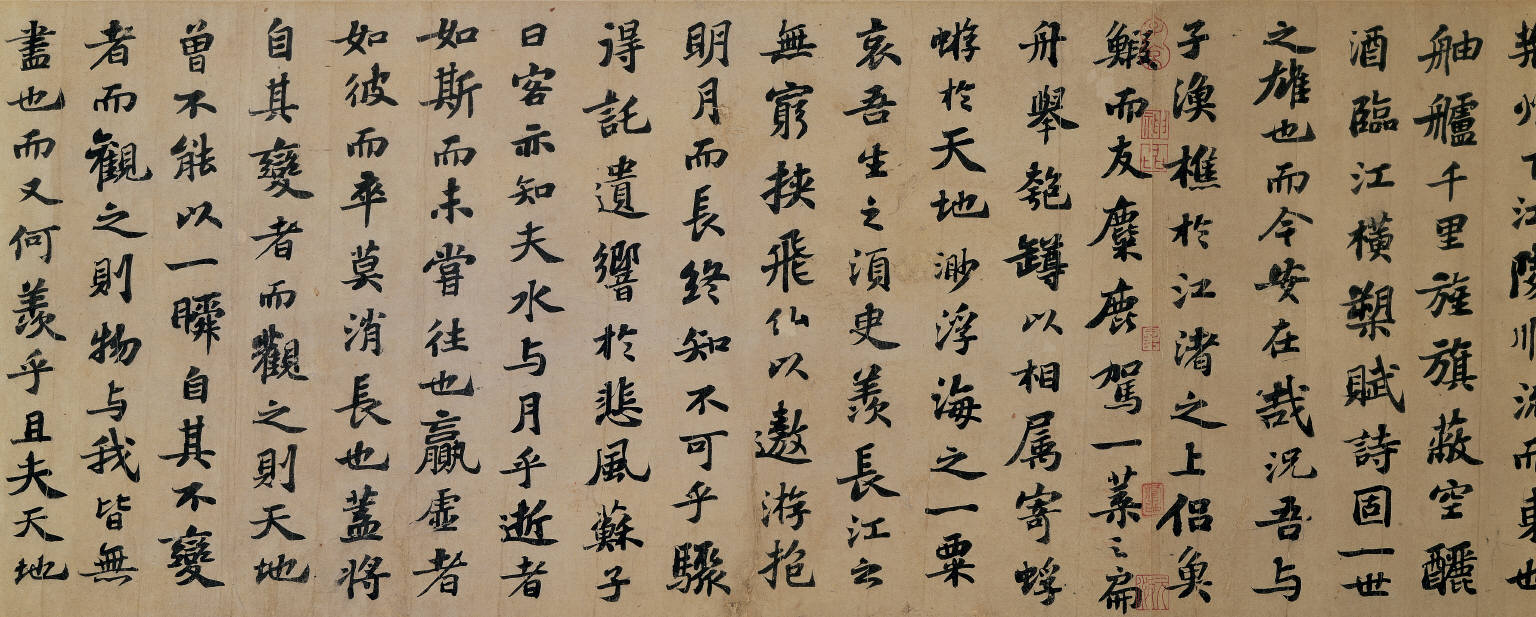 荊州下江陵順流而東也
舳艫千里旌旗蔽空釃
酒臨江橫槊賦詩固一世
之雄也而今安在哉況吾与
子漁樵於江渚之上侣魚
鰕而友麋鹿駕一葉之扁
舟舉匏罇以相属寄蜉
蝣於天地渺浮海之一粟
哀吾生之須臾羨長江之
無窮挟飛仙以遨游抱
明月而長終知不可乎驟
得託遺響於悲風蘇子
曰客亦知夫水与月乎逝者
如斯而未嘗往也贏虛者
如彼而卒莫消長也蓋將
自其變者而觀之則天地
曾不能以一瞬自其不變
者而觀之則物与我皆無
盡也而又何羨乎且夫天地